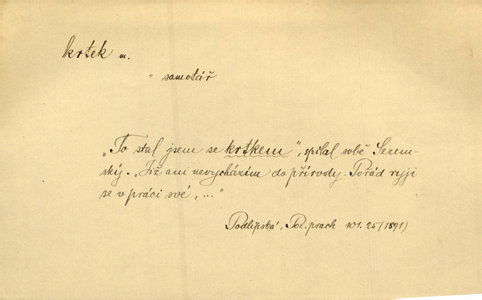 krtek m.
" samotář
„To stal jsem se krtkem", spílal sobě Sezem-
ský. „Již ani nevycházím do přírody. Pořád ryji
se v práci své, ..."
Podlipská, Poz. prach 101.25 (1891)